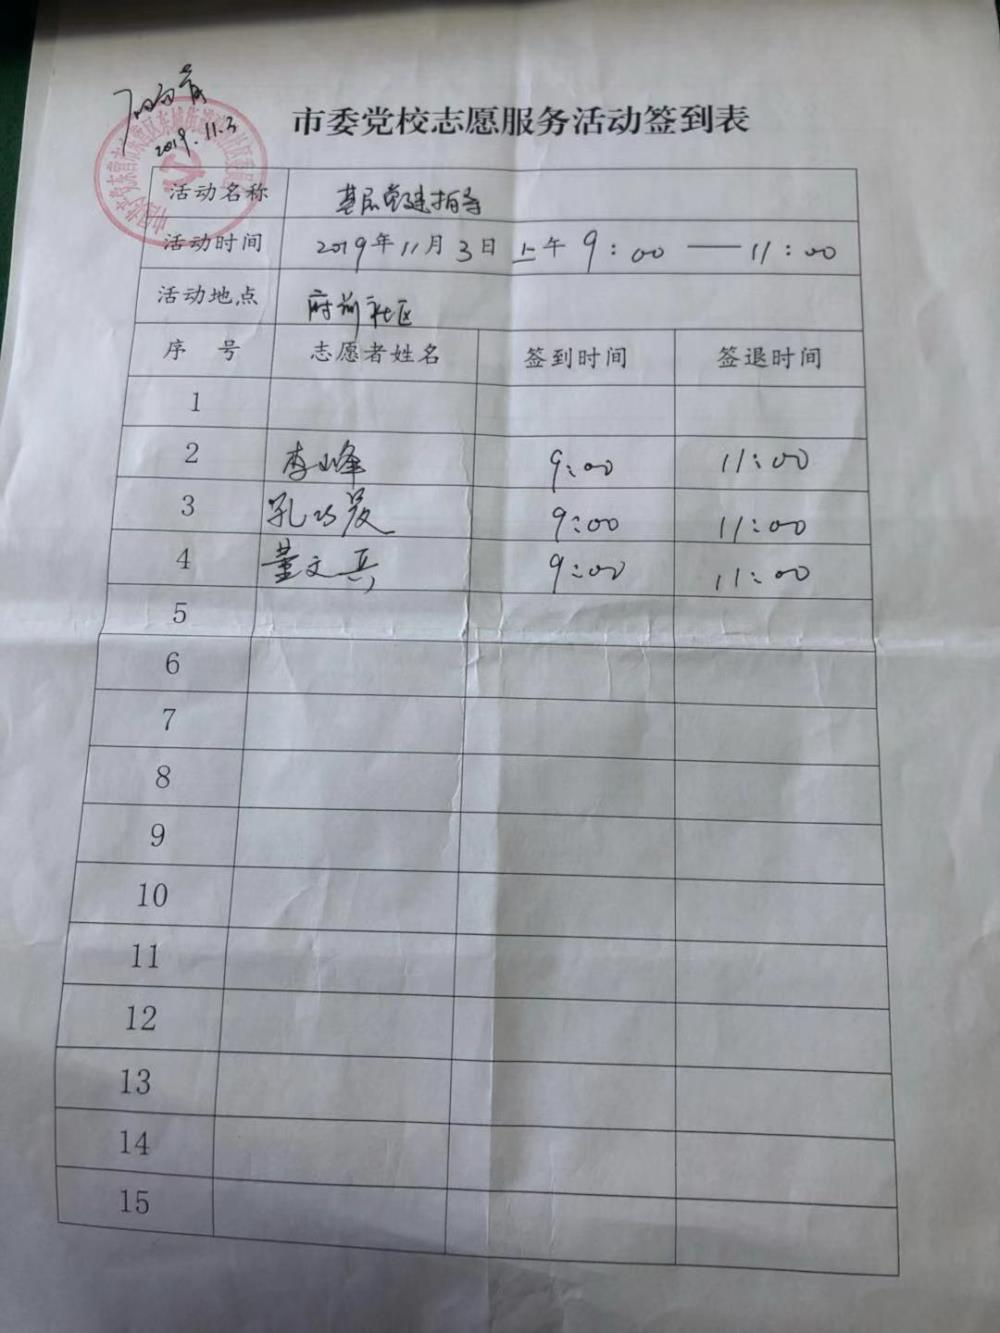 2019.11.3
市委党校志愿服务活动签到表
活动名称 基层党建指导
活动时间 2019年11月3日 上午9:00——11:00
活动地点 府前社区
序 号 志愿者姓名 签到时间 签退时间
1
2 李峰 9:00 11:00
3 孔巧 9:00 11:00
4 董文兵 9:00 11:00
5
6
7
8
9
10
11
12
13
14
15